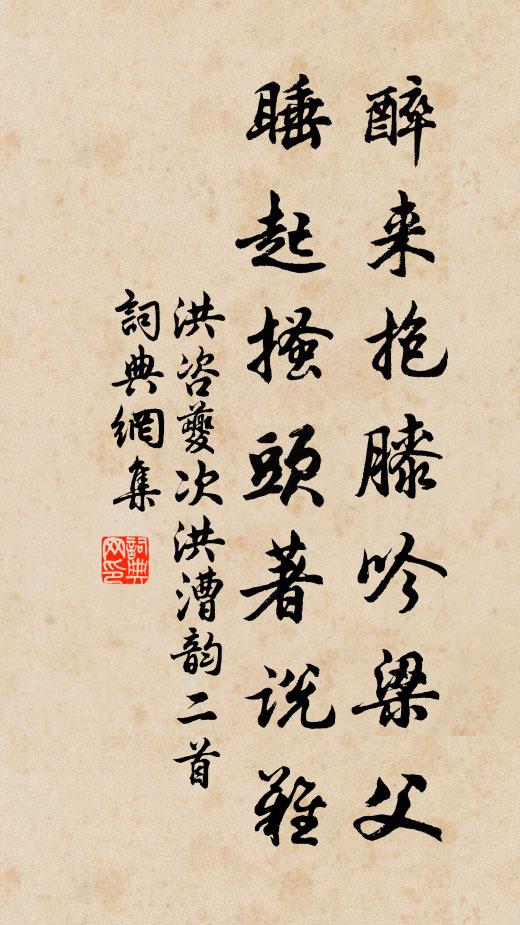 醉来抱膝吟梁父
睡起搔頭著説難
洪咨夔次洪漕韵二首
詞典網集
詞典网印